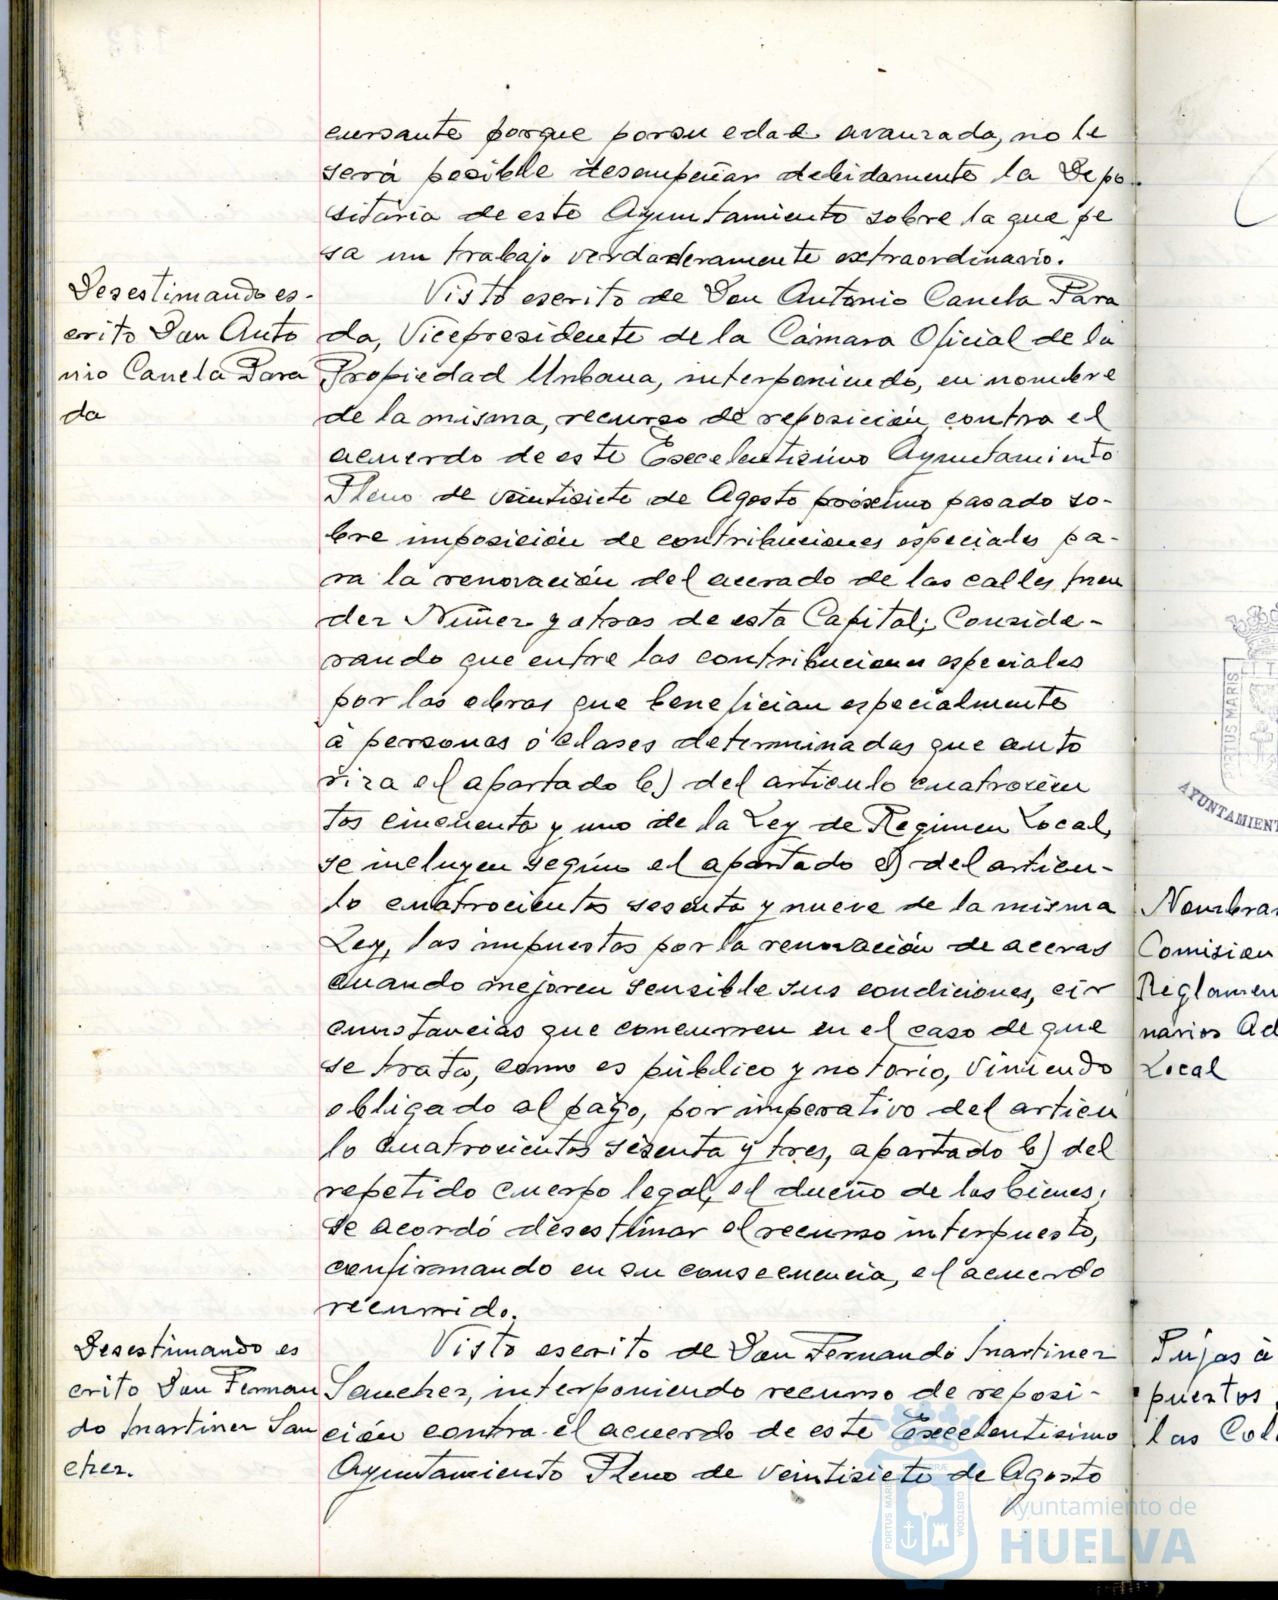 cursante porque por su edad avanzada, no le
será posible desempeñar debidamente la Depo
sitaria de este Ayuntamiento sobre la que pe
sa un trabajo verdaderamente extraordinario.
Desestimando es-
crito Don Anto
nio Canela Para
da
Visto escrito de Don Antonio Canela Para
da, Vicepresidente de la Cámara Oficial de la
Propiedad Urbana, interponiendo, en nombre
de la misma, recurso de reposición contra el
acuerdo de este Excelentísimo Ayuntamiento
Pleno de veintisiete de Agosto próximo pasado so-
bre imposición de contribuciones especiales pa-
ra la renovación del acerado de las calles Men
dez Nuñez y otras de esta Capital; Conside-
rando que entre las contribuciones especiales
por las obras que benefician especialmente
á personas ó clases determinadas que auto
riza el apartado b) del articulo cuatrocien
tos cincuenta y uno de la Ley de Regimen Local,
se incluyen según el apartado e) del articu-
lo cuatrocientos sesenta y nueve de la misma
Ley, las impuestas por la renovación de aceras
cuando mejoren sensible sus condiciones, cir
cunstancias que concurren en el caso de que
se trata, como es público y notorio, viniendo
obligado al pago, por imperativo del articu
lo cuatrocientos sesenta y tres, apartado b) del
repetido cuerpo legal, el dueño de los bienes;
se acordó desestimar el recurso interpuesto,
confirmando en su consecuencia, el acuerdo
recurrido.
Desestimando es
crito Don Fernan
do Martinez San
chez.
Visto escrito de Don Fernando Martinez
Sanchez, interponiendo recurso de reposi-
ción contra el acuerdo de este Excelentísimo
Ayuntamiento Pleno de veintisiete de Agosto
Nombrar
Comision
Reglamen
narios Ad
Local
Pujas á
puestos
las Col
PORTUS MARIS
AYUNTAMIENT
PORTUS MARIS
CUSTODIA
Ayuntamiento de
HUELVA